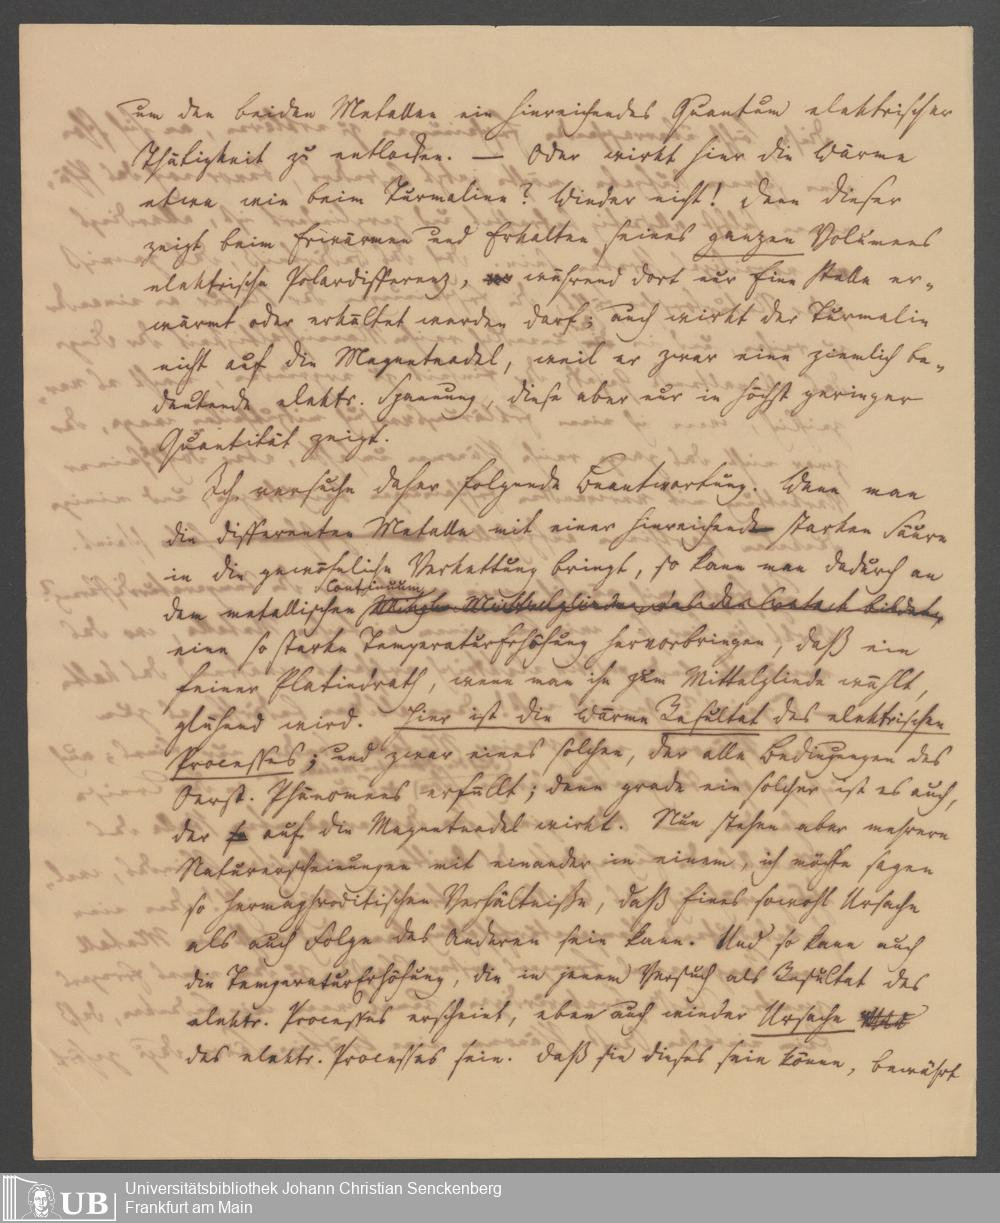 um den beiden Metallen ein hinreichendes Quantum elektrischer
Thätigkeit zu entlocken. — Oder wirkt hier die Wärme
etwa wie beim Turmaline? Wieder nicht! denn dieser
zeigt beim Erwärmen und Erkalten seines ganzen Volumens
elektrische Polardifferenz, während dort nur Eine Stelle er-
wärmt oder erkältet werden darf; auch wirkt der Turmalin
nicht auf die Magnetnadel, weil er zwar eine ziemlich be-
deutende elektr. Spannung, diese aber nur in höchst geringer
Quantität zeigt.
Ich versuche daher folgende Beantwortung. Wenn man
die differenten Metalle mit einer hinreichend starken Säure
in die gewöhnliche Verkettung bringt, so kann man dadurch an
Continuum
dem metallischen
eine so starke TemperaturErhöhung hervorbringen, daß ein
feiner Platindrath, wenn man ihn zum Mittelgliede wählt,
glühend wird. Hier ist die Wärme Resultat des elektrischen
Processes; und zwar eines solchen, der alle Bedingungen des
Oerst. Phänomens erfüllt; denn grade ein solcher ist es auch,
der auf die Magnetnadel wirkt. Nun stehen aber mehrere
Naturerscheinungen mit einander in einem, ich möchte sagen
so hermaphroditischen Verhältnisse, daß Eines sowohl Ursache
als auch Folge des Anderen sein kann. Und so kann auch
die TemperaturErhöhung, die in jenem Versuch als Resultat des
elektr. Processes erscheint, eben auch wieder Ursache
des elektr. Processes sein. Daß sie dieses sein könne, bewährt
Universitätsbibliothek Johann Christian Senckenberg
Frankfurt am Main
UB